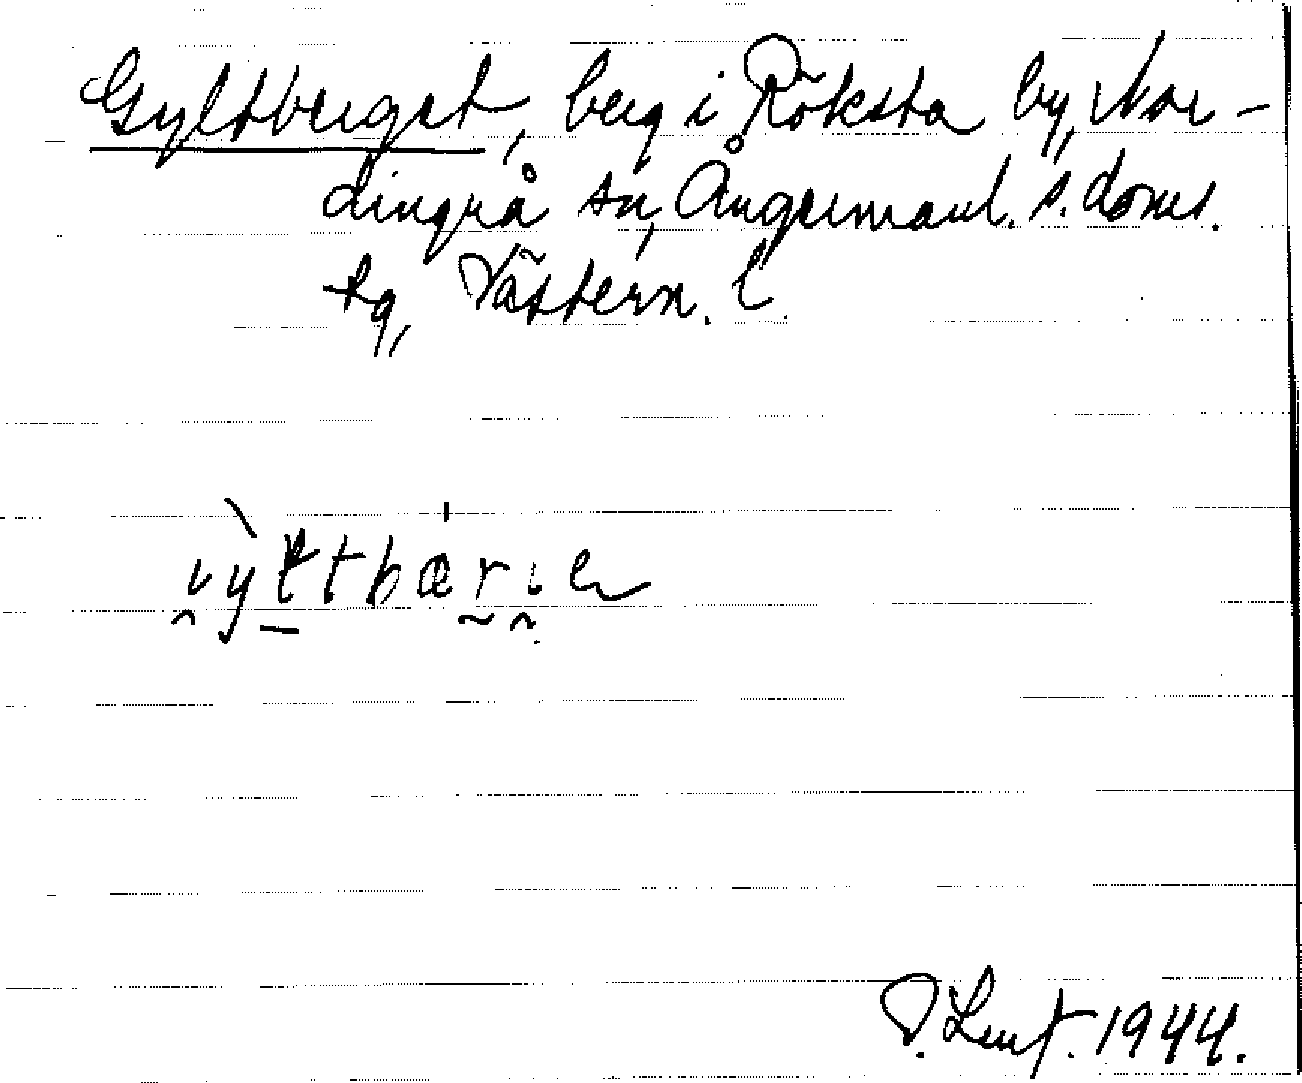 Gyltberget, berg i Röksta by, Nor-
dingrå sn, Ångermanl. s. doms.
tg, Västern. l.
1944.